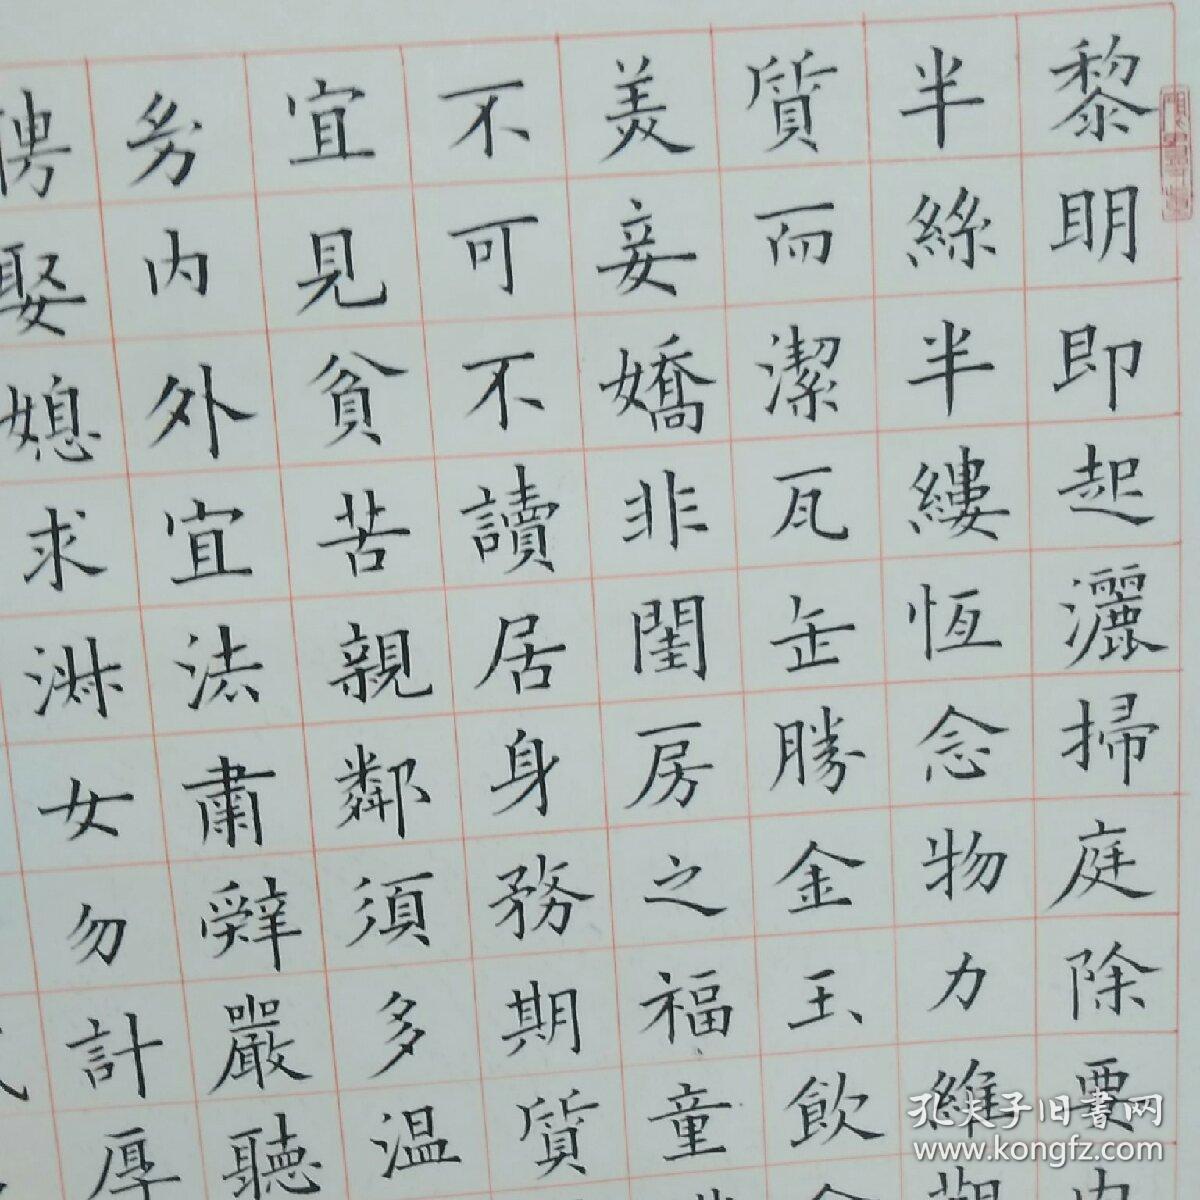 黎明即起灑掃庭除要內
半絲半縷恆念物力維艱
質而潔瓦缶勝金玉飲食
美妾嬌非閨房之福童
不可不讀居身務期質
宜見貧苦親鄰須多溫
多內外宜法肅辭嚴聽
聘娶媳求淑女勿計厚
孔夫子旧书网
www.kongfz.com